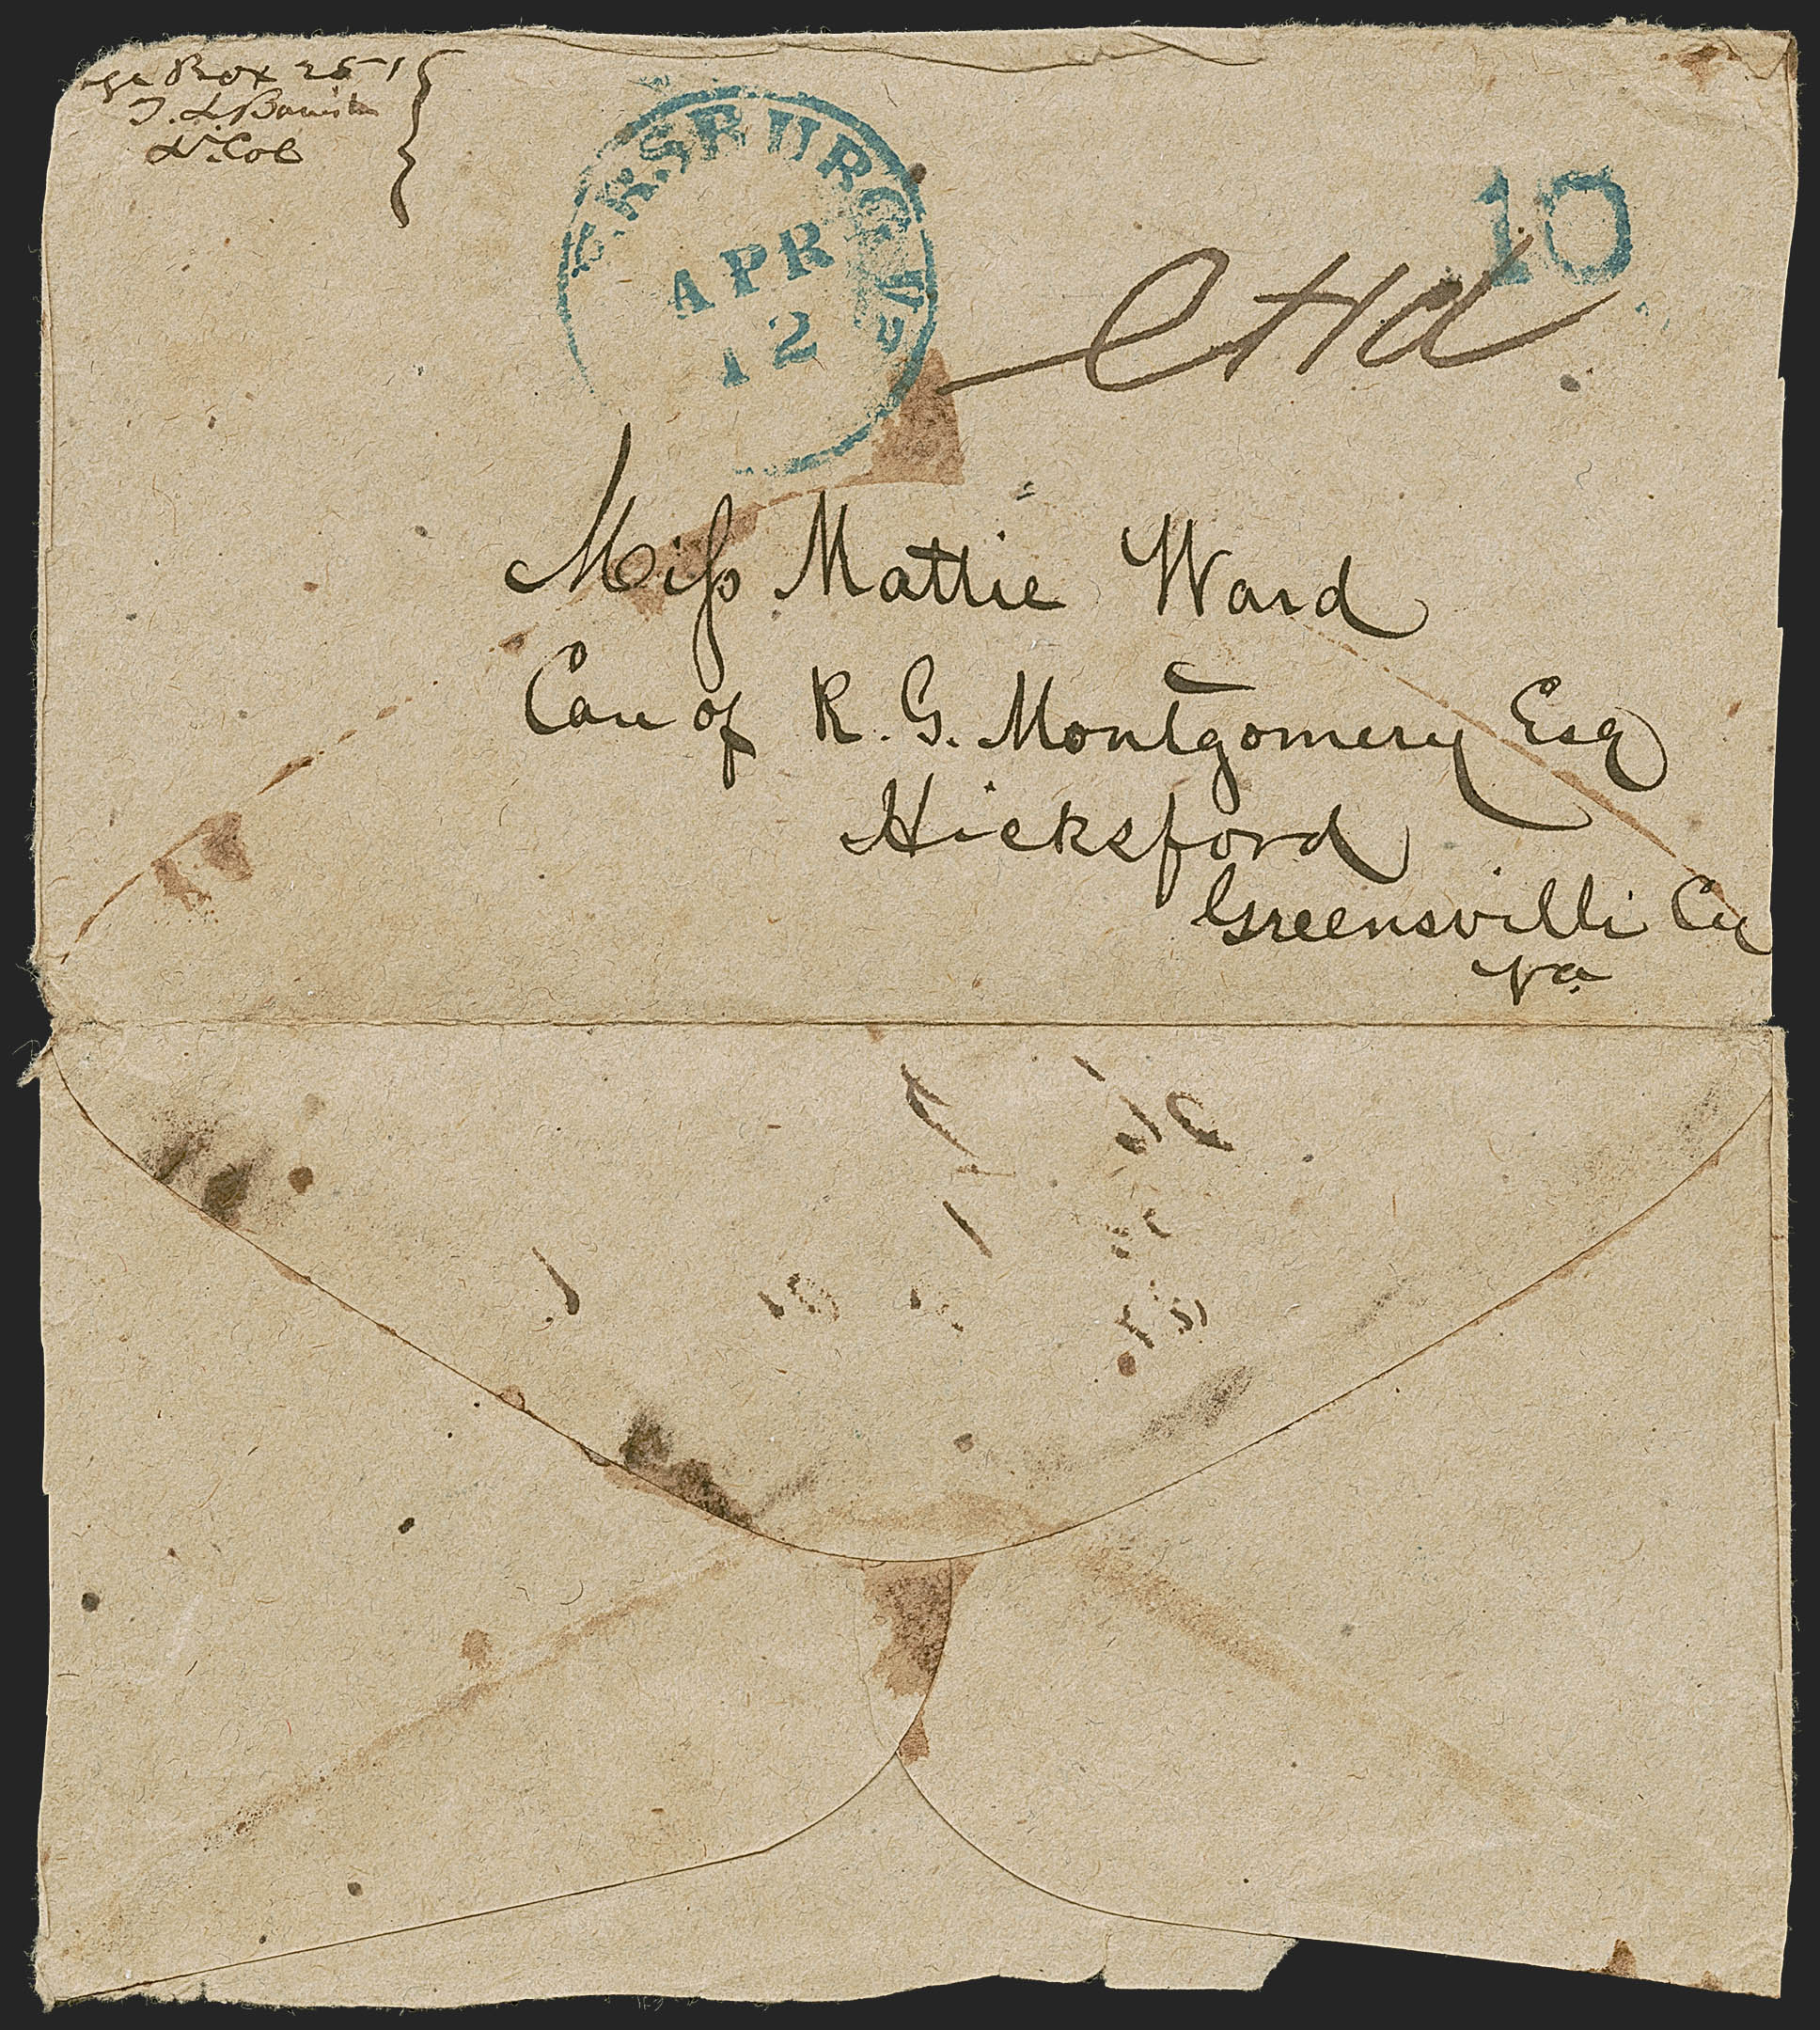 Box 251
T. L. Banister
Lt. Col
ERSBURG Va
APR
12
10
Chd
Miss Mattie Ward
Care of R. G. Montgomery Esq
Hicksford
Greensville Co
Va